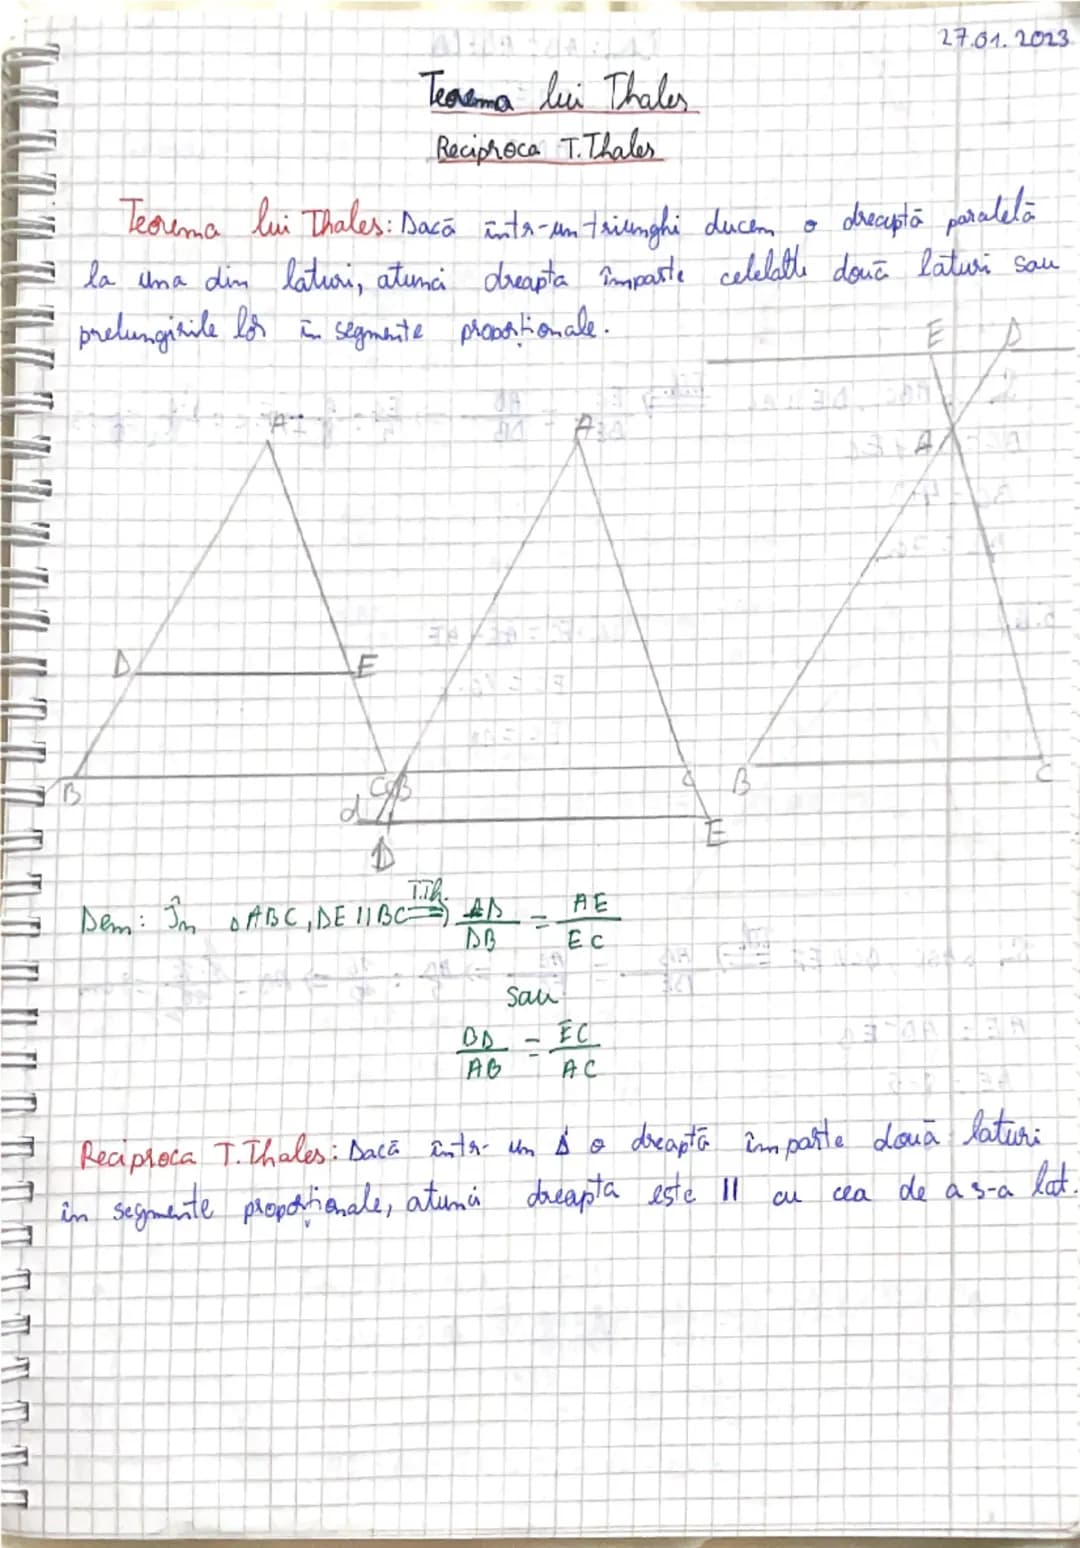 27.01.2023
Teorema lui Thales
Reciproca T. Thales
Teorema lui Thales: Dacă într-un triunghi ducem o dreaptă paralelă
la una din laturi, atunci dreapta împarte celelalte două laturi sau
prelungirile lor în segmente proporționale.
E D
A A A
D E
B C B C B C
d D E
Dem: În △ABC, DE || BC =T.Th.=> AD/DB = AE/EC
sau
BD/AB = EC/AC
Reciproca T. Thales: Dacă într-un △ o dreaptă împarte două laturi
în segmente proporționale, atunci dreapta este || cu cea de a 3-a lat.